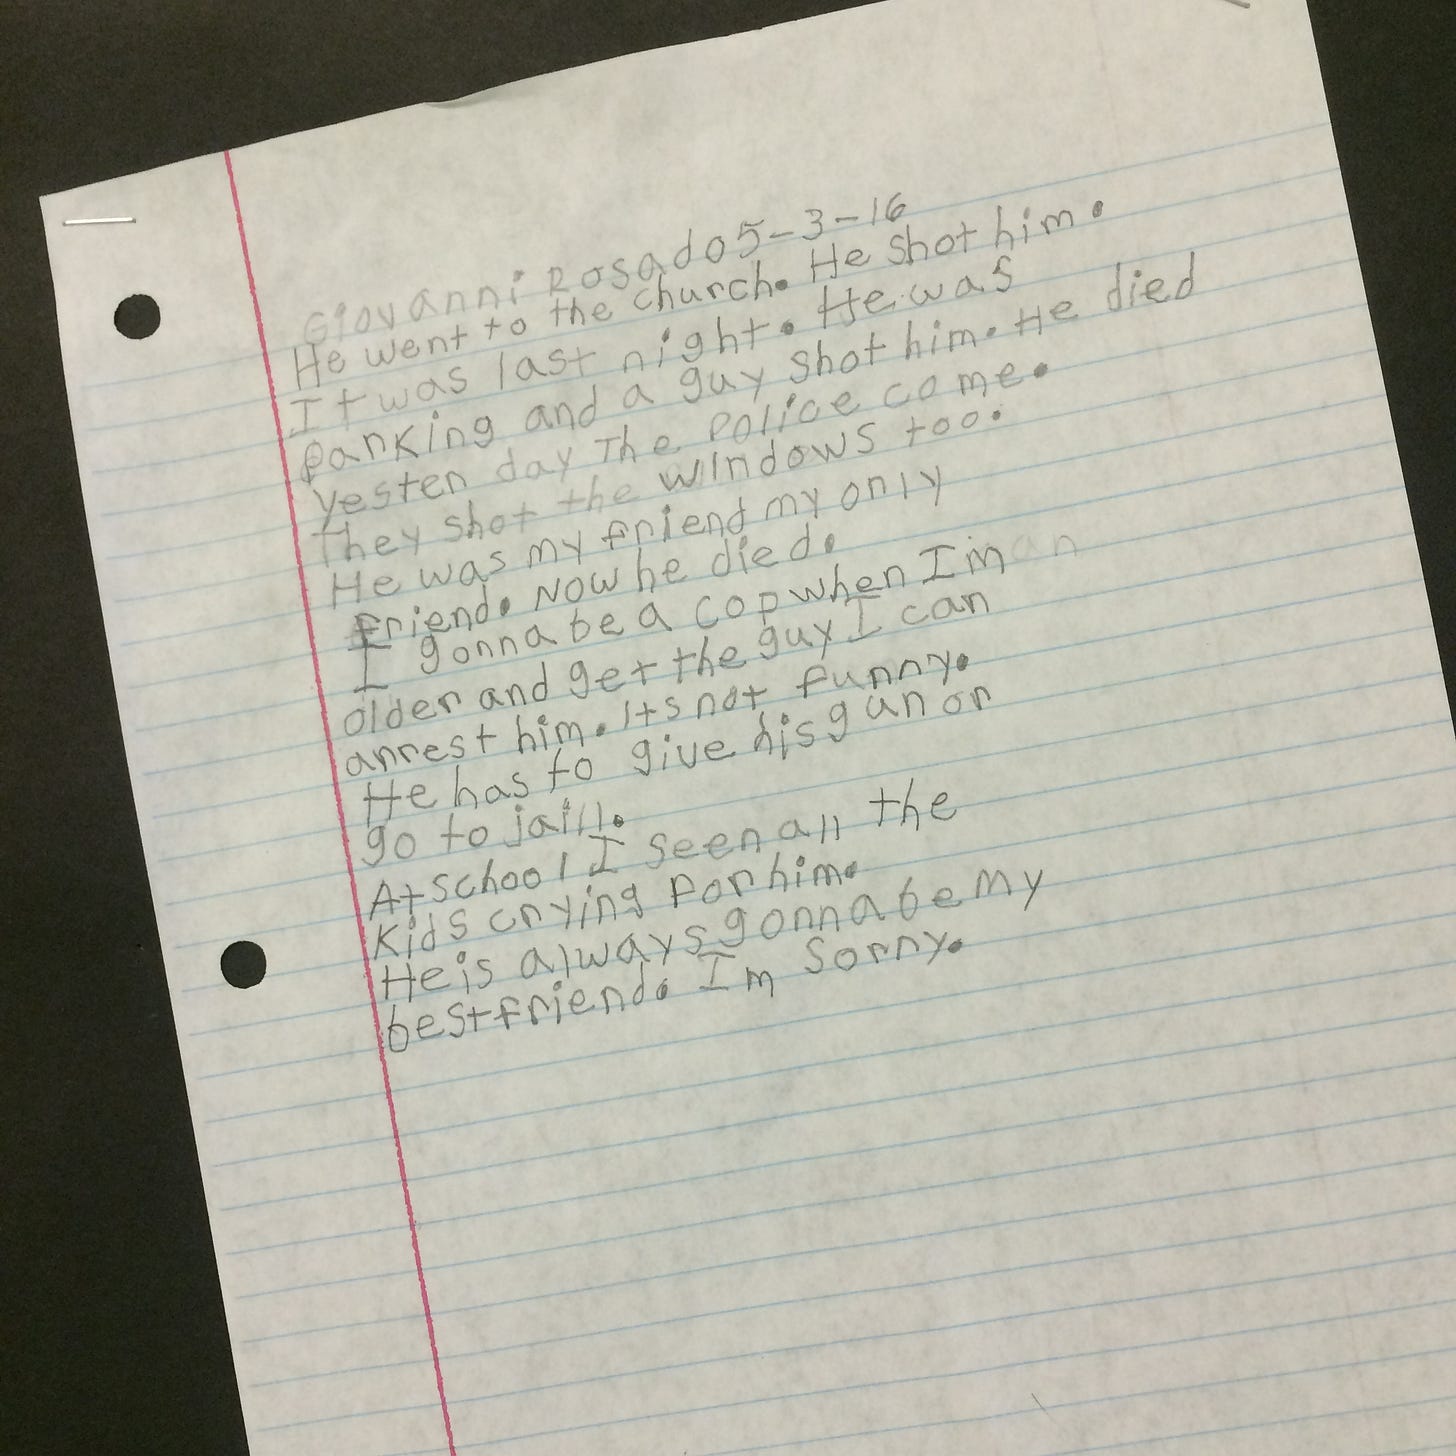 Giovanni Rosado 5-3-16
He went to the church. He shot him.
It was last night. He was
parking and a guy shot him. He died
yester day The Police come.
They shot the windows too.
He was my friend my only
friend. Now he died.
I gonna be a cop when Im an
older and get the guy I can
arrest him. Its not funny.
He has to give his gun or
go to jaill.
At school I seen all the
Kids crying for him.
He is always gonna be my
best friend. Im Sorry.